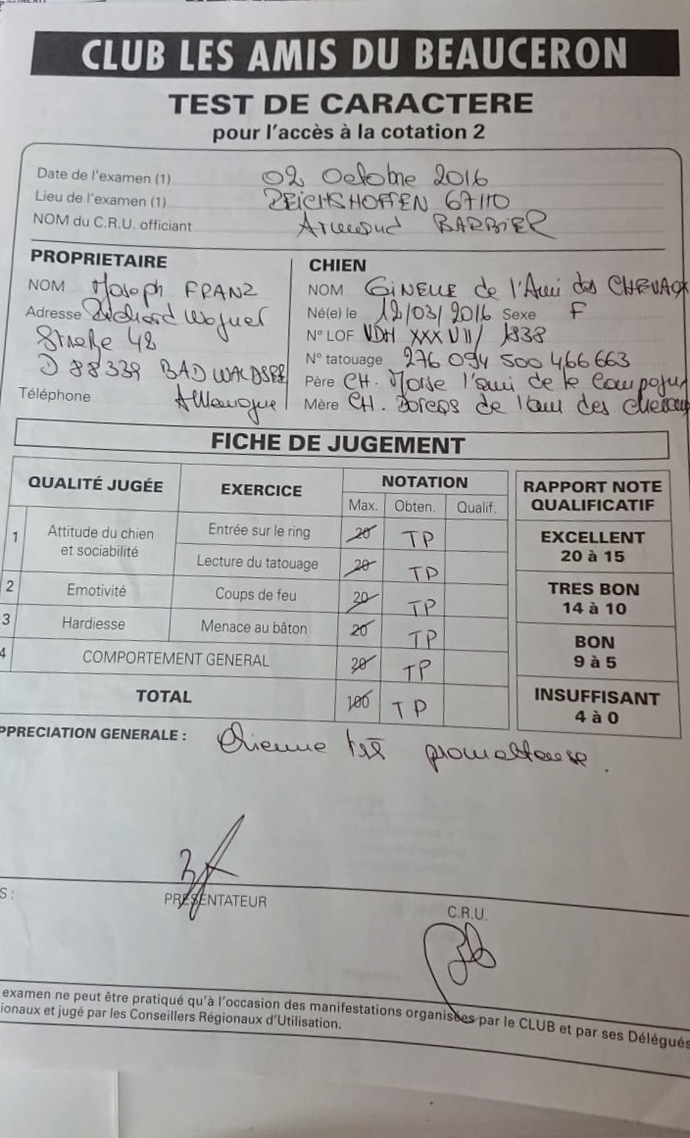 CLUB LES AMIS DU BEAUCERON
TEST DE CARACTERE
pour l'accès à la cotation 2
Date de l'examen (1) 02 Octobre 2016
Lieu de l'examen (1) REICHSHOFFEN 67110
NOM du C.R.U. officiant Armand BARBIER
PROPRIETAIRE
NOM Joseph FRANZ
Adresse Richard Wagner
Straße 48
D 88339 BAD WALDSEE
Téléphone Allemagne
CHIEN
NOM GINELLE de l'Ami des CHEVAUX
Né(e) le 12/03/2016 Sexe F
N° LOF VDH XXXVII/ 1838
N° tatouage 276 094 500 466 663
Père CH. Morse l'ami de la Campagne
Mère CH. de l'ami des chevaux
FICHE DE JUGEMENT
QUALITÉ JUGÉE EXERCICE NOTATION
Max. Obten. Qualif.
1 Attitude du chien et sociabilité Entrée sur le ring 20 TP
Lecture du tatouage 20 TP
2 Emotivité Coups de feu 20 TP
3 Hardiesse Menace au bâton 20 TP
4 COMPORTEMENT GENERAL 20 TP
TOTAL 100 TP
RAPPORT NOTE
QUALIFICATIF
EXCELLENT
20 à 15
TRES BON
14 à 10
BON
9 à 5
INSUFFISANT
4 à 0
PPRECIATION GENERALE : Chienne très prometteuse.
S :
PRESENTATEUR
C.R.U.
examen ne peut être pratiqué qu'à l'occasion des manifestations organisées par le CLUB et par ses Délégués
ionaux et jugé par les Conseillers Régionaux d'Utilisation.